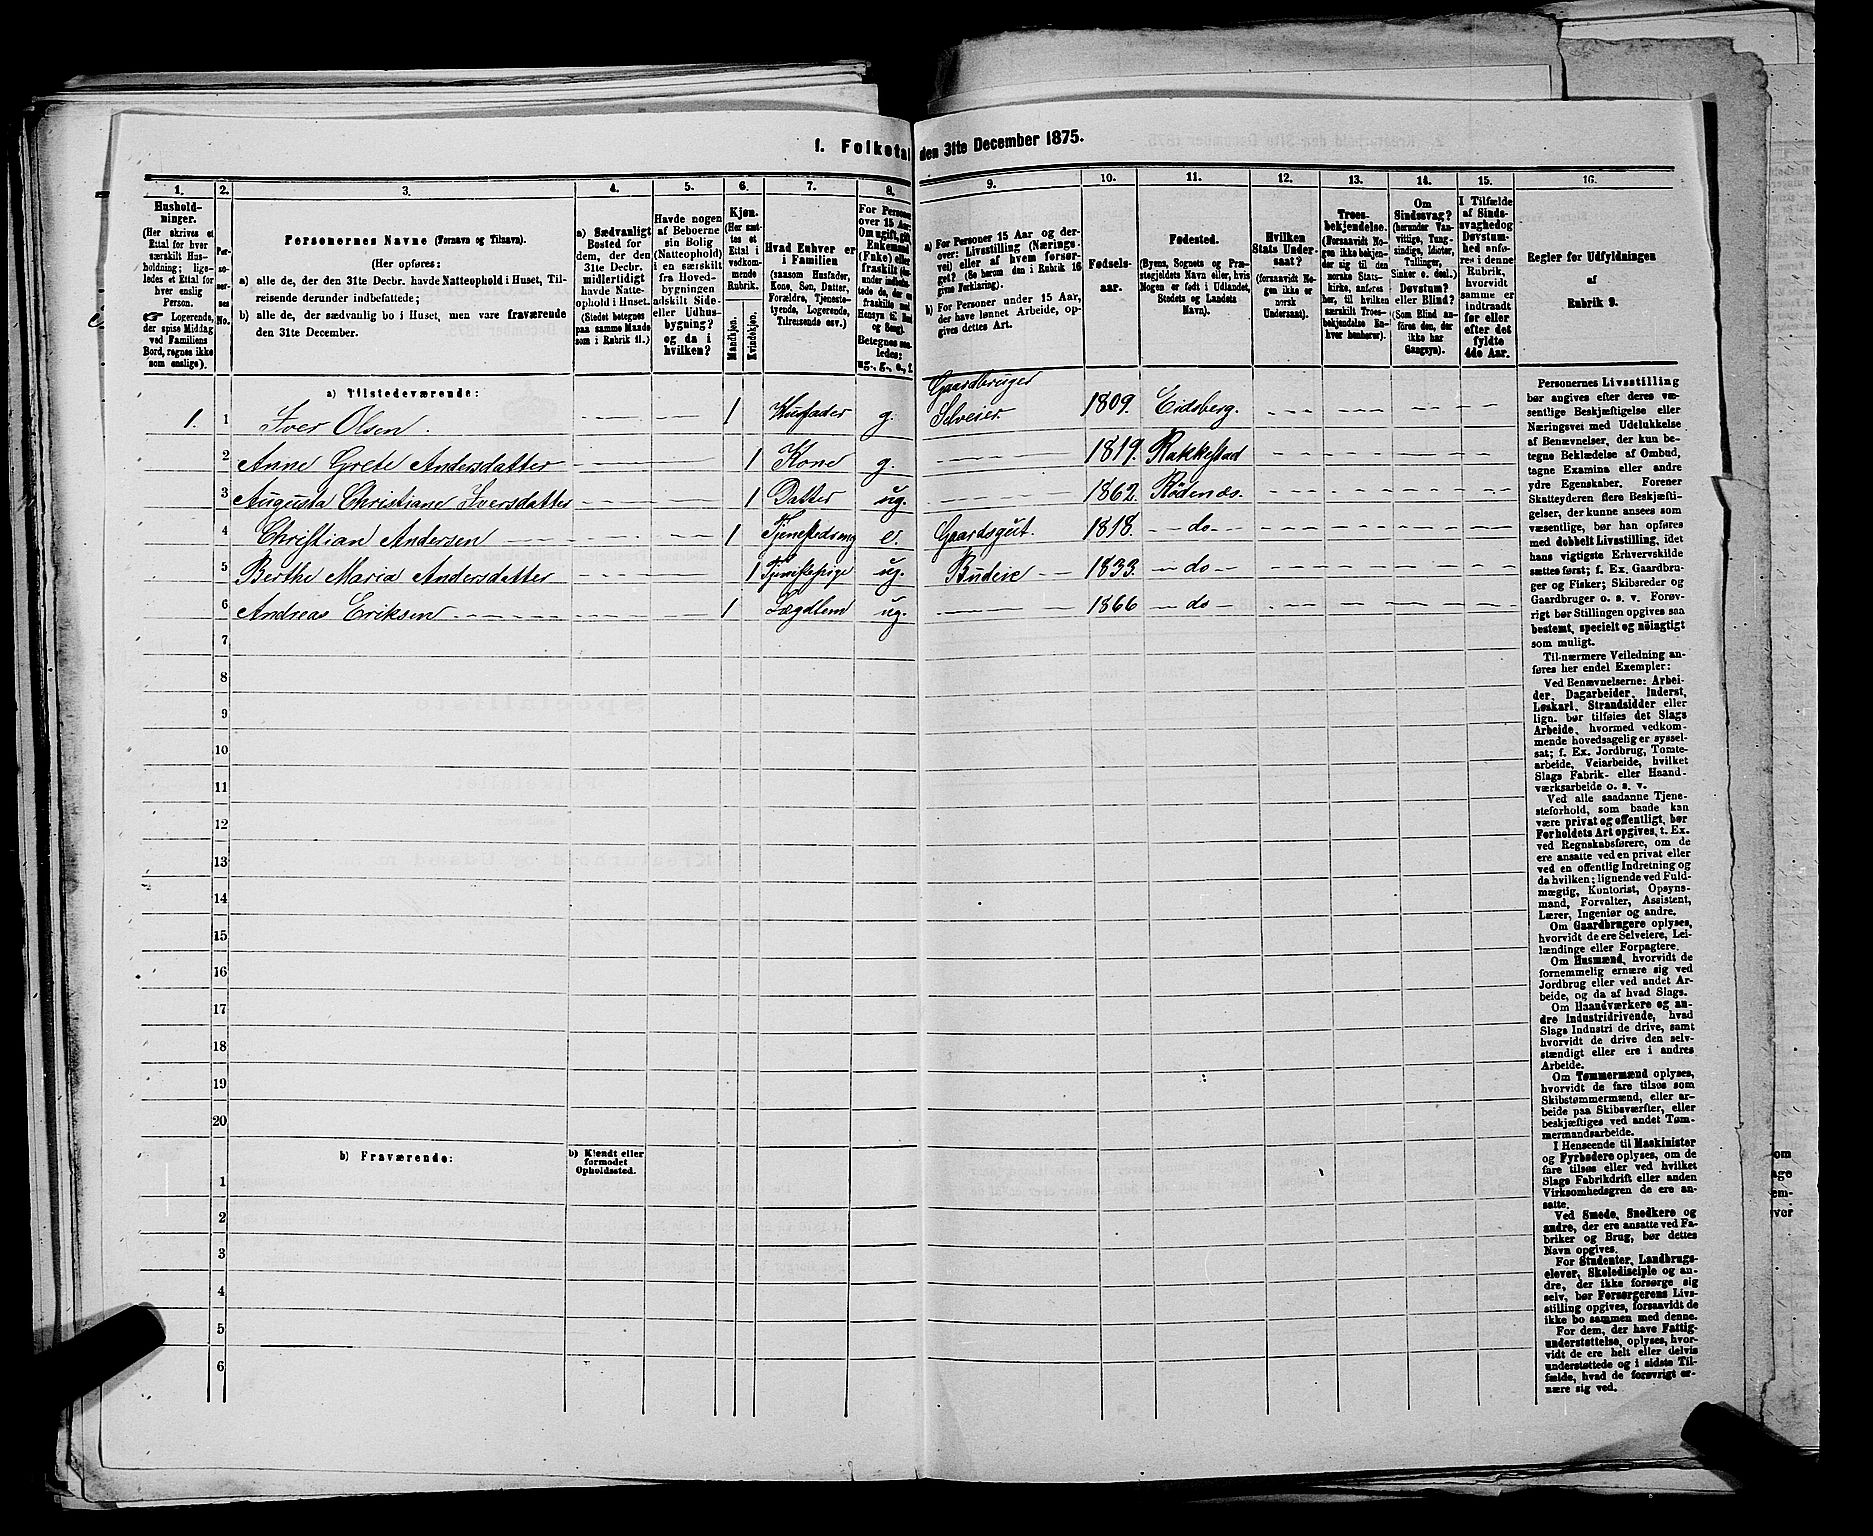 1. Folketal den 31te December 1875.
1. 2. 3. 4. 5. 6. 7. 8. 9. 10. 11. 12. 13. 14. 15. 16.
Hushold-
ninger.
(Her skrives et
Ettal for hver
særskilt Hus-
holdning; lige-
ledes et Ettal for
hver enslig
Person.
☛ Logerende,
der spise Middag
ved Familiens
Bord, regnes ikke
som enslige).
Per-
so-
ner-
nes
No.
Personernes Navne (Fornavn og Tilnavn).
(Her opføres:
a) alle de, der den 31te Decbr. havde Natteophold i Huset, Til-
reisende derunder indbefattede;
b) alle de, der sædvanlig bo i Huset, men vare fraværende
den 31te December.
a) Sædvanligt
Bosted for
dem, der den
31te Decbr.
midlertidigt
havde Natte-
ophold i Huset.
(Stedet betegnes
paa samme Maade
som i Rubrik 11.)
Havde nogen
af Beboerne
sin Bolig
(Natteophold)
i en særskilt
fra Hoved-
bygningen
adskilt Side-
eller Udhus-
bygning?
og da i
hvilken?
Kjøn.
(Her sæt-
tes et
Ettal i
vedkom-
mende
Rubrik.
Mandkjøn.
Kvindekjøn.
Hvad Enhver er
i Familien
(saasom Husfader,
Kone, Søn, Datter,
Forældre, Tjeneste-
tyende, Logerende,
Tilreisende osv.)
For Personer
over 15 Aar:
Om ugift, gift,
Enkemand
(Enke) eller
fraskilt
Betegnes saa-
ledes:
ug., g., e., f.
a) For Personer 15 Aar og der-
over: Livsstilling (Nærings-
vei) eller af hvem forsør-
get? (Se herom den i Rubrik 16
givne Forklaring).
b) For Personer under 15 Aar,
der have lønnet Arbeide, op-
gives dettes Art.
Fødsels-
aar.
Fødested.
(Byens, Sognets og Præ-
stegjeldets Navn eller, hvis
Nogen er født i Udlandet,
Stedets og Landets
Navn).
Hvilken
Stats Under-
saat?
(forsaavidt No-
gen ikke er
norsk
Undersaat).
Troes-
bekjendelse.
(Forsaavidt No-
gen ikke bekjen-
der sig til den
norske Stats-
kirke, anføres
her, til hvilken
særskilt Troes-
bekjendelse En-
hver henhører).
Om
Sindssvag?
(herunder Van-
vittige, Tung-
sindige, Idioter,
Tullinger,
Sinker o. desl.)
Døvstum?
eller Blind?
(Som Blind an-
føres den, der
ikke har
Gangsyn).
I Tilfælde
af Sinds-
svaghed og
Døvstum-
hed anfø-
res i denne
Rubrik,
hvorvidt
samme er
indtraadt
før eller
efter det
fyldte
4de Aar.
Regler for Udfyldningen
af
Rubrik 9.
a) Tilstedeværende:
1. 1 Iver Olsen. 1 Husfader g. Gaardbruger Selveier. 1809. Eidsberg.
2 Anne Grete Andersdatter 1 Kone g. 1819. Rakkestad
3 Augusta Christiane Iversdatter 1 Datter ug. 1862. Rødenæs.
4 Christian Andersen 1 Tjenestedreng e. Gaardsgut. 1818. do
5 Berthe Maria Andersdatter 1 Tjenestepige ug. Budeie 1833. do
6 Andreas Eriksen 1 Lægdlem ug. 1866 do
7
8
9
10
11
12
13
14
15
16
17
18
19
20
b) Fraværende:
b) Kjendt eller
formodet
Opholdssted.
1
2
3
4
5
6
Personernes Livsstilling
bør angives efter deres væ-
sentlige Beskjæftigelse eller
Næringsvei med Udelukkelse
af Benævnelser, der kun be-
tegne Beklædelse af Ombud,
tagne Examina eller andre
ydre Egenskaber. Forener
Skatteyderen flere Beskjæfti-
gelser, der kunne ansees som
væsentlige, bør han opføres
med dobbelt Livsstilling, idet
hans vigtigste Erhvervskilde
sættes først; f. Ex. Gaardbru-
ger og Fisker; Skibsreder og
Gaardbruger o. s. v. Forøv-
rigt bør Stillingen opgives saa
bestemt, specielt og nøiagtigt
som muligt.
Til nærmere Veiledning an-
føres her endel Exempler:
Ved Benævnelserne: Arbei-
der, Dagarbeider, Inderst,
Løskarl, Strandsidder eller
lign. bør tilføies det Slags
Arbeide, hvormed vedkom-
mende hovedsagelig er syssel-
sat; f. Ex. Jordbrug, Tomte-
arbeide, Veiarbeide, hvilket
Slags Fabrik- eller Haand-
værksarbeide o. s. v.
Ved alle saadanne Tjene-
steforhold, som baade kan
være privat og offentligt, bør
Forholdets Art opgives, t. Ex.
ved Regnskabsførere, om de
ere ansatte ved en privat eller
ved en offentlig Indretning og
da hvilken; lignende ved Fuld-
mægtig, Kontorist, Opsyns-
mand, Forvalter, Assistent,
Lærer, Ingeniør og andre.
Om Gaardbrugere oplyses,
hvorvidt de ere Selveiere, Lei-
lændinge eller Forpagtere.
Om Husmænd, hvorvidt de
fornemmelig ernære sig ved
Jordbrug eller ved andet Ar-
beide, og da af hvad Slags.
Om Haandværkere og an-
dre Industridrivende, hvad
Slags Industri de drive, samt
hvorvidt de drive den selv-
stændigt eller ere i andres
Arbeide.
Om Tømmermænd oplyses,
hvorvidt de fare tilsøs som
Skibstømmermænd, eller ar-
beide paa Skibsværfter, eller
beskjæftiges ved andet Tøm-
mermandsarbeide.
I Henseende til Maskinister
og Fyrbødere oplyses, om de
fare tilsøs eller ved hvilket
Slags Fabrikdrift eller anden
Virksomhedsgren de ere an-
satte.
Ved Smede, Snedkere og
andre, der ere ansatte ved Fa-
briker og Brug, bør dettes
Navn opgives.
For Studenter, Landbrugs-
elever, Skoledisciple og an-
dre, der ikke forsørge sig
selv, bør Forsørgerens Livs-
stilling opgives, forsaavidt de
ikke bo sammen med denne.
For dem, der have Fattig-
understøttelse, oplyses, hvor-
vidt de ere helt eller delvis
understøttede og i sidste Til-
fælde, hvad de forøvrigt er-
nære sig ved.